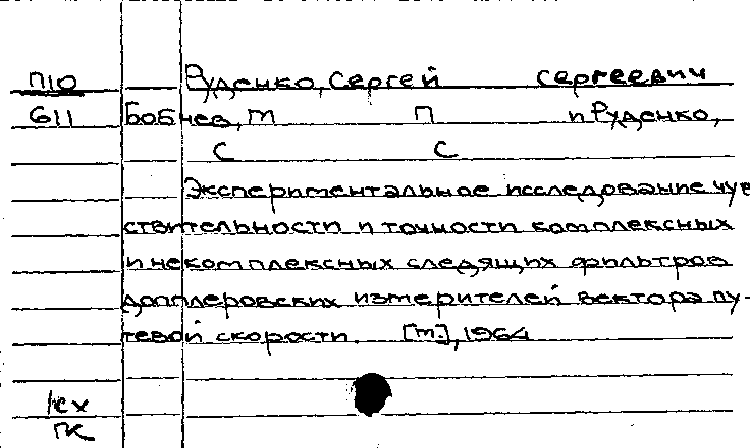 П10 Руденко, Сергей Сергеевич
611 Бобнев, М П и Руденко,
С С
Экспериментальное исследование чув
ствительности и точности комплексных
и некомплексных следящих фильтров
допплеровских измерителей вектора пу-
тевой скорости. [М.], 1964
кх
пк